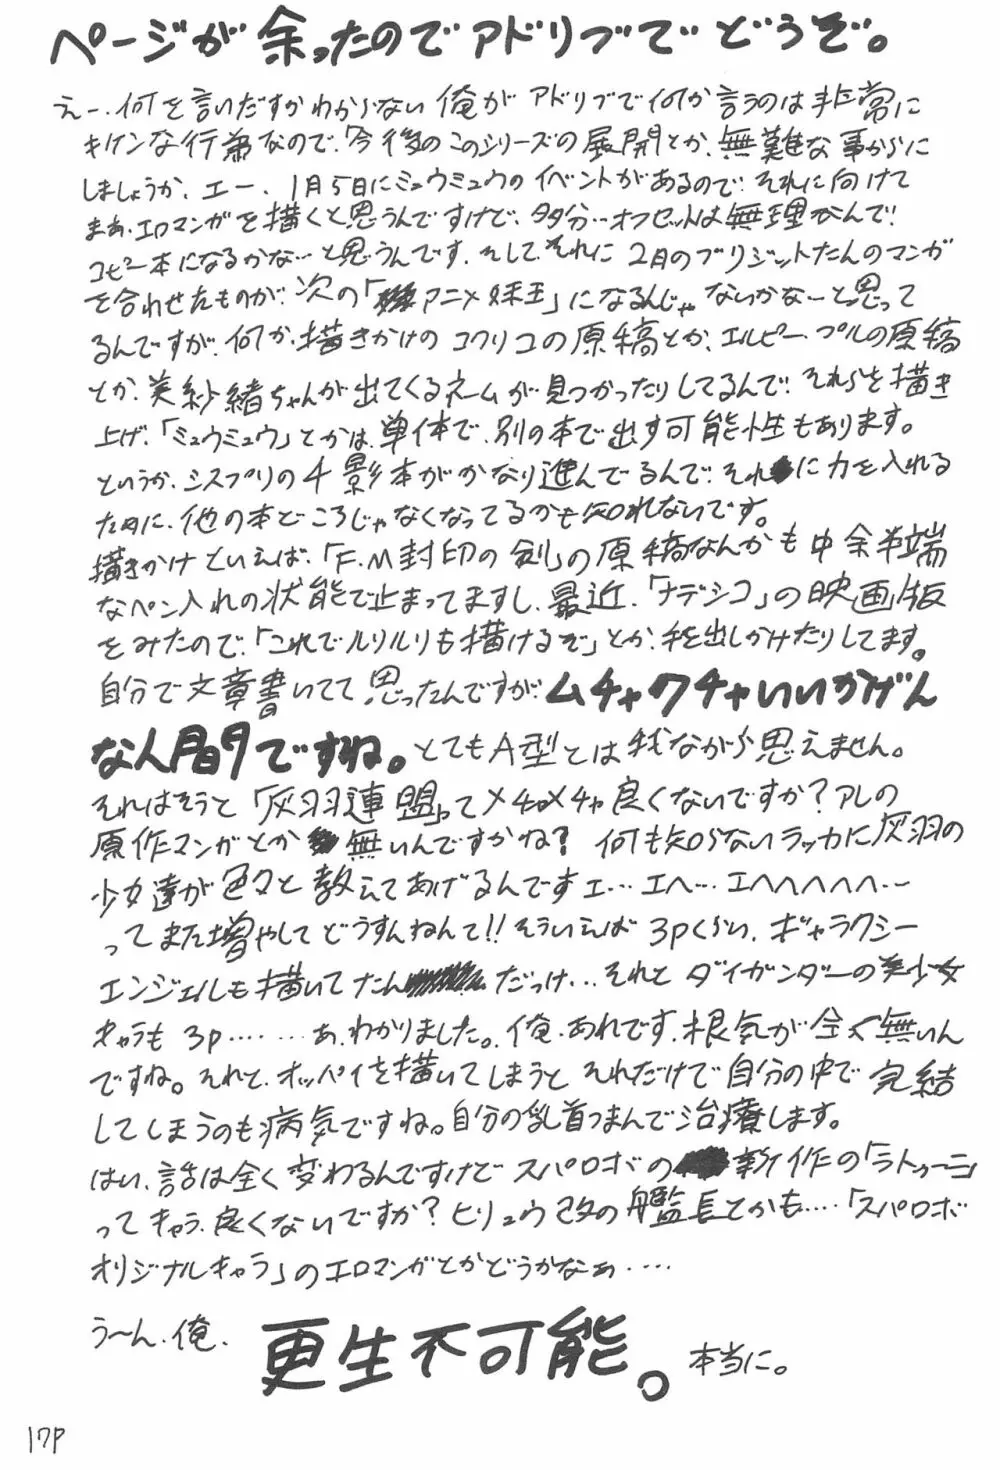 ページが余ったのでアドリブでどうぞ。
えー、何を言いだすかわからない俺がアドリブで何か言うのは非常に
キケンな行為なので、今後のこのシリーズの展開とか、無難な事からに
しましょうか、エー、1月5日にミュウミュウのイベントがあるので、それに向けて
まあ、エロマンガを描くと思うんですけど、多分…オフセットは無理なんで!
コピー本になるかな…と思うんです、そして、それに2月のブリジットたんのマンガ
を合わせたものが、次の「アニメ妹王」になるんじゃないかなーと思って
るんですが、何か、描きかけのコクリコの原稿とか、エルピー・プルの原稿
とか、美紗緒ちゃんが出てくるネームが見つかったりしてるんで、それらを描き
上げ、「ミュウミュウ」とかは、単体で、別の本で出す可能性もあります。
というか、シスプリの千影本がかなり進んでるんで、それに力を入れる
ために、他の本どころじゃなくなってるかも知れないです。
描きかけといえば、「F.M封印の剣」の原稿なんかも中途半端
なペン入れの状態で止まってますし、最近、「ナデシコ」の映画版
をみたので、「これでルリルリも描けるぞ」とか、手を出しかけたりしてます。
自分で文章書いてて思ったんですが、ムチャクチャいいかげん
な人間ですね。とてもA型とは我ながら思えません。
それはそうと「灰羽連盟」ってメチャメチャ良くないですか?アレの
原作マンガとか無いんですかね? 何も知らないラッカに灰羽の
少女達が色々と教えてあげるんですエ…エヘ…エヘヘヘヘヘ…
ってまた増やしてどうすんねんて!!そういえば3Pくらい、ギャラクシー
エンジェルも描いてたんだっけ…それとダイガンダーの美少女
キャラも3P……あ、わかりました。俺、あれです、根気が全く無いん
ですね。それと、オッパイを描いてしまうとそれだけで自分の中で完結
してしまうのも病気ですね。自分の乳首つまんで治療します。
はい、話は全く変わるんですけどスパロボの新作の「ラトゥーニ」
ってキャラ、良くないですか?ヒリュウ改の艦長とかも…「スパロボ
オリジナルキャラ」のエロマンガとかどうかなぁ…
う〜ん、俺、更生不可能。本当に。
17P